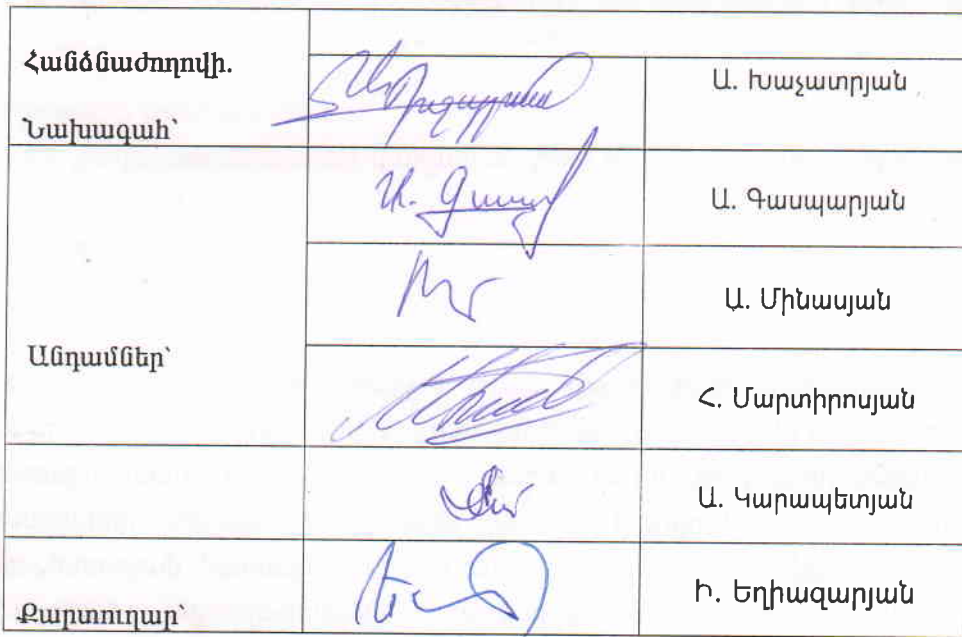 Հանձնաժողովի.
Նախագահ՝
Ա. Խաչատրյան
Ա. Գասպարյան
Ա. Մինասյան
Անդամներ՝
Հ. Մարտիրոսյան
Ա. Կարապետյան
Քարտուղար՝
Ի. Եղիազարյան